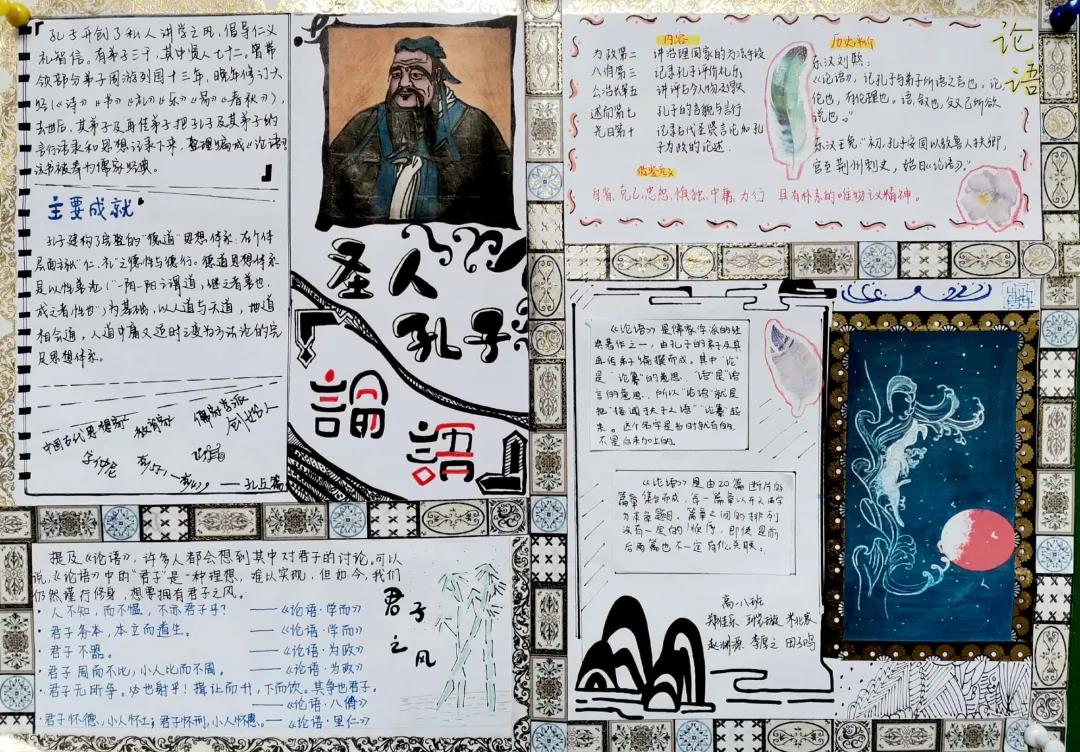 孔子开创了私人讲学之风，倡导仁义
礼智信。有弟子三千，其中贤人七十二。曾带
领部分弟子周游列国十三年，晚年修订六
经（《诗》《书》《礼》《乐》《易》《春秋》），
去世后，其弟子及再传弟子把孔子及其弟子的
言行语录和思想记录下来，整理编成《论语》
该书被奉为儒家经典。
主要成就
孔子建构了完整的“德道”思想体系：在个体
层面主张“仁、礼”之德性与德行。德道思想体系
是以性善论（“一阴一阳之谓道，继之者善也，
成之者性也”）为基础，以人道与天道、地道
相会通，人道中庸又适时之变为方法论的完
足思想体系。
中国古代思想家 教育家 儒家学派
创始人
——孔丘篇
圣人
孔子
論
語
提及《论语》，许多人都会想到其中对君子的讨论。可以
说，《论语》中的“君子”是一种理想，难以实现，但如今，我们
仍然谨行修身，想要拥有君子之风。
·人不知，而不愠，不亦君子乎？ ——《论语·学而》
·君子务本，本立而道生。 ——《论语·学而》
·君子不器。 ——《论语·为政》
·君子周而不比，小人比而不周。 ——《论语·为政》
·君子无所争。必也射乎！揖让而升，下而饮。其争也君子。
——《论语·八佾》
·君子怀德，小人怀土；君子怀刑，小人怀惠。——《论语·里仁》
君子之风
论语
内容
为政第二 讲治理国家的方法手段
八佾第三 记录孔子评价礼乐
公冶长第五 讲评古今人物及
述而第七 孔子的 言行
尧曰第十 记录古代圣贤言论和孔
子为政的论述
借鉴意义
自省、克己、忠恕、慎独、中庸、力行 具有朴素的唯物主义精神。
历史评价
东汉刘熙：
《论语》，记孔子与弟子所语之言也。论，
伦也，有伦理也。语，叙也，叙己所欲
说也。”
东汉王充：“初，孔子安国以教鲁人扶卿，
官至荆州刺史，始曰《论语》。”
《论语》是儒家学派的经
典著作之一，由孔子的弟子及其
再传弟子编撰而成。其中“论”
是“论纂”的意思，“语”是“语
言”的意思，所以“论语”就是
把“接闻于夫子之语”“论纂”起
来。这个名字是当时就有的，
不是后来加上的。
《论语》是由20篇断片的
篇章集合而成，每一篇章以开头两字
为本章题目。篇章之间的排列
没有一定的顺序，即使是前
后两篇也不一定有什么关联。
高一八班